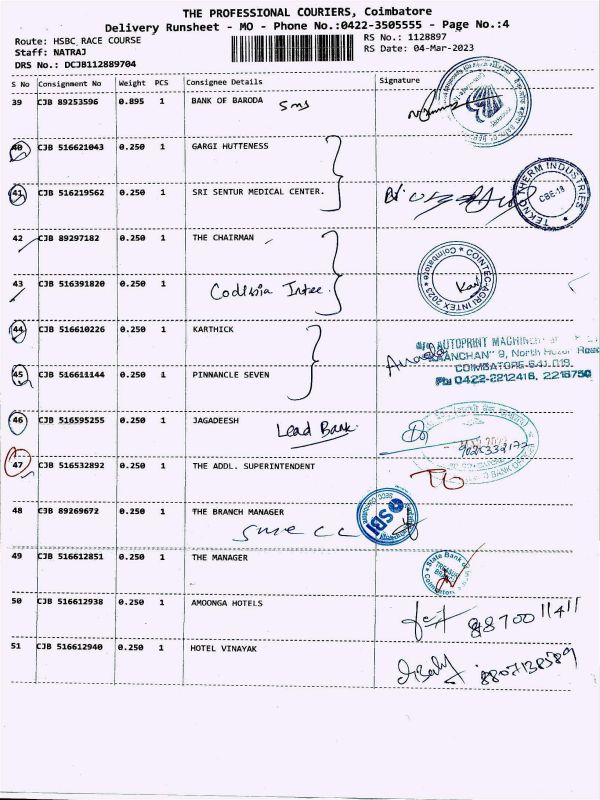 THE PROFESSIONAL COURIERS, Coimbatore
Delivery Runsheet - MO - Phone No.:0422-3505555 - Page No.:4
Route: HSBC RACE COURSE
Staff: NATRAJ
DRS No.: DCJB112889704
RS No.: 1128897
RS Date: 04-Mar-2023
S No Consignment No Weight PCS Consignee Details Signature
39 CJB 89253596 0.895 1 BANK OF BARODA
sms
40 CJB 516621043 0.250 1 GARGI HUTTENESS
41 CJB 516219562 0.250 1 SRI SENTUR MEDICAL CENTER.
TEKNO THERM INDUSTRIES
CBE-18
42 CJB 89297182 0.250 1 THE CHAIRMAN
43 CJB 516391820 0.250 1
Codissia Intec.
COINTEC-AGRI INTEX 2023 * Coimbatore *
44 CJB 516610226 0.250 1 KARTHICK
AUTOPRINT MACHINERY
"KAANCHAN" 9, North Huzur Road
COIMBATORE-641 018.
Ph: 0422-2212416, 2216750
45 CJB 516611144 0.250 1 PINNANCLE SEVEN
46 CJB 516595255 0.250 1 JAGADEESH
Lead Bank
9025332172
47 CJB 516532892 0.250 1 THE ADDL. SUPERINTENDENT
TO
48 CJB 89269672 0.250 1 THE BRANCH MANAGER
SBI
sme cc
49 CJB 516612851 0.250 1 THE MANAGER
State Bank
50 CJB 516612938 0.250 1 AMOONGA HOTELS
8870011411
51 CJB 516612940 0.250 1 HOTEL VINAYAK
8807138589